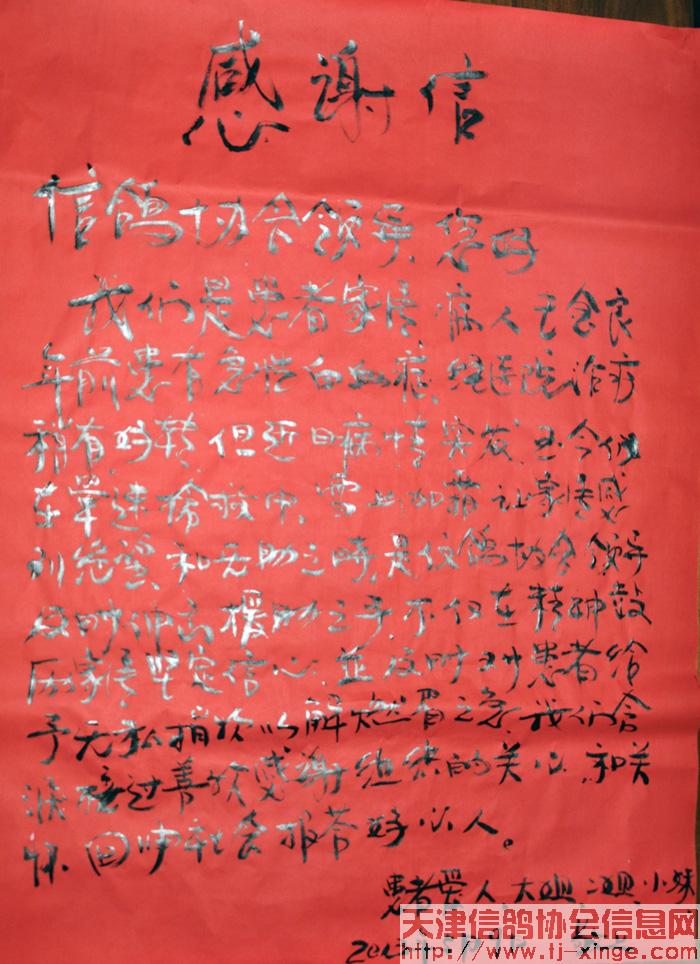 感谢信
信鸽协会领导、您好
我们是患者家属病人王会良
年前患有急性白血病,经医院治疗
稍有好转,但近日病情突发,至今仍
在紧速抢救中,雪上加霜让家属感
到绝望和无助之时,是信鸽协会领导
及时伸出援助之手,不仅在精神鼓
历家属坚定信心,並及时对患者给
予无私捐款以解燃眉之急,我们含
泪接过善款感谢组织的关心和关
怀,回归社会报答好心人。
患者爱人,大姐,二姐,小妹
天津信鸽协会信息网
www.tj-xinge.com